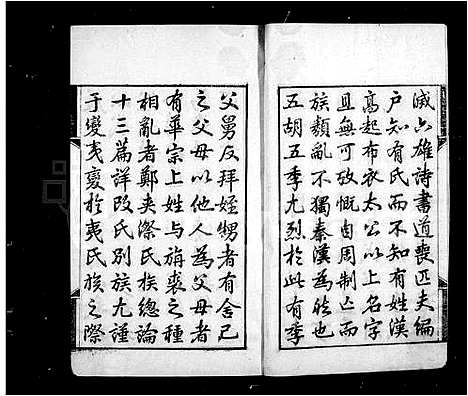 滅六雄詩書道喪匹夫編
戶知有氏而不知有姓漢
高起布衣太公以上名字
且無可攷慨自周制亡而
族類亂不獨秦漢為然也
五胡五季尤烈於此有季
父舅反拜姪甥者有舍己
之父母以他人為父母者
有華宗上姓与旃裘之種
相亂者鄭夾漈氏族總論
十三篇詳攷氏別族尤謹
于變夷變於夷氏族之際